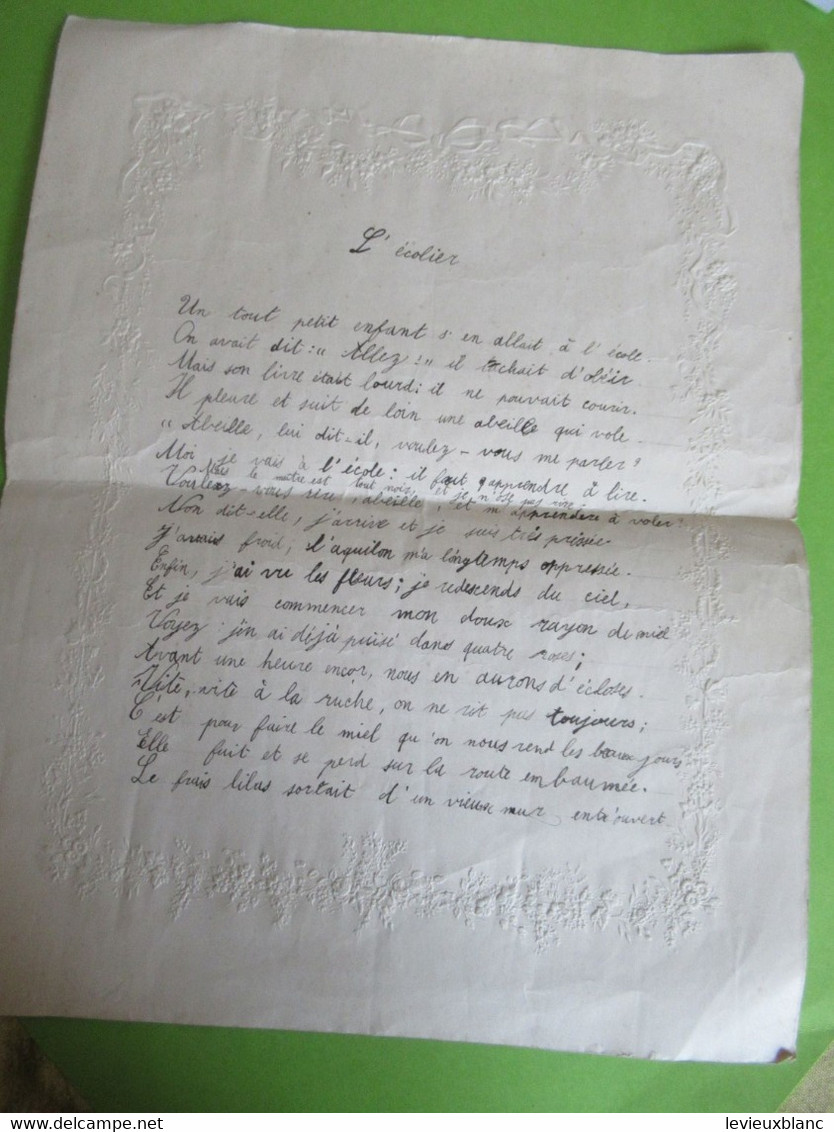 L'écolier
Un tout petit enfant s'en allait à l'école.
On avait dit : " Allez ! " il tachait d'obéir
Mais son livre était lourd ; il ne pouvait courir.
Il pleure et suit de loin une abeille qui vole
" Abeille, lui dit-il, voulez-vous me parler ?
Moi je vais à l'école : il faut apprendre à lire.
Mais le maître est tout noir, et je n'ose pas rire
Voulez-vous rire, abeille, et m'apprendre à voler ?
Non dit-elle, j'arrive et je suis très pressée.
J'avais froid, l'aquilon m'a longtemps oppressée.
Enfin, j'ai vu les fleurs ; je redescends du ciel,
Et je vais commencer mon doux rayon de miel
Voyez : j'en ai déjà puisé dans quatre roses ;
Avant une heure encor, nous en aurons d'écloses.
Vite, vite à la ruche, on ne rit pas toujours ;
C'est pour faire le miel qu'on nous rend les beaux jours
Elle fuit et se perd sur la route embaumée.
Le frais lilas sortait d'un vieux mur entr'ouvert
levieuxblanc